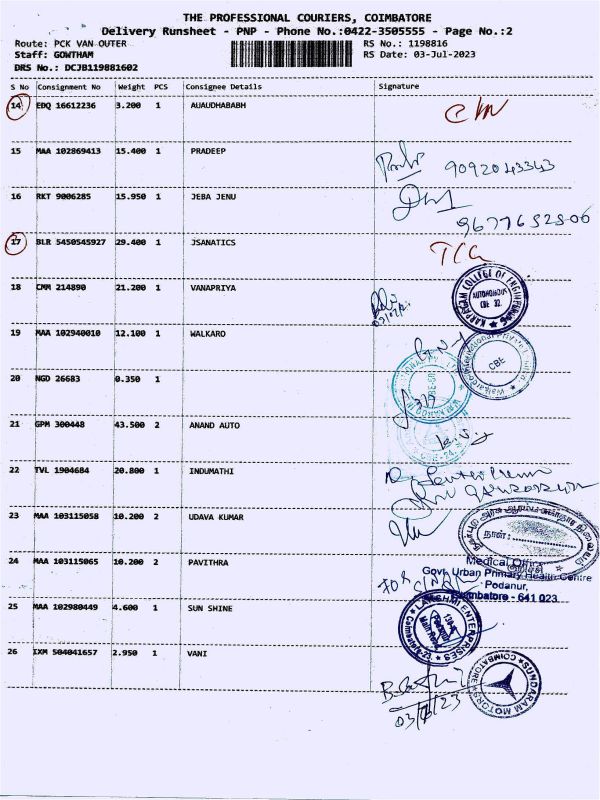 THE PROFESSIONAL COURIERS, COIMBATORE
Delivery Runsheet - PNP - Phone No.:0422-3505555 - Page No.:2
Route: PCK VAN OUTER RS No.: 1198816
Staff: GOWTHAM RS Date: 03-Jul-2023
DRS No.: DCJB119881602
S No Consignment No Weight PCS Consignee Details Signature
14 EDQ 16612236 3.200 1 AUAUDHABABH
15 MAA 102869413 15.400 1 PRADEEP
9092043343
16 RKT 9006285 15.950 1 JEBA JENU
17 BLR 5450545927 29.400 1 JSANATICS
18 CMM 214890 21.200 1 VANAPRIYA
KARPAGAM COLLEGE OF ENGINEERING
AUTONOMOUS
CBE 32.
19 MAA 102940010 12.100 1 WALKARO
CBE
20 NGD 26683 0.350 1
21 GPM 300448 43.500 2 ANAND AUTO
22 TVL 1904684 20.800 1 INDUMATHI
23 MAA 103115058 10.200 2 UDAVA KUMAR
நாள்:
24 MAA 103115065 10.200 2 PAVITHRA
Medical Officer
Govt. Urban Primary Health Centre
Podanur,
Coimbatore - 641 023.
25 MAA 102980449 4.600 1 SUN SHINE
LAKSHMI ENTERPRISES
Podanur
Main Road
26 IXM 504041657 2.950 1 VANI
SUNDARAM MOTORS
COIMBATORE